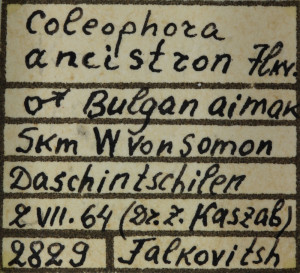 Coleophora
ancistron Flkv.
♂ Bulgan aimak
5km W von Somon
Daschintschilen
2 VII. 64 (Dr. Z. Kaszab)
2829 Falkovitsh